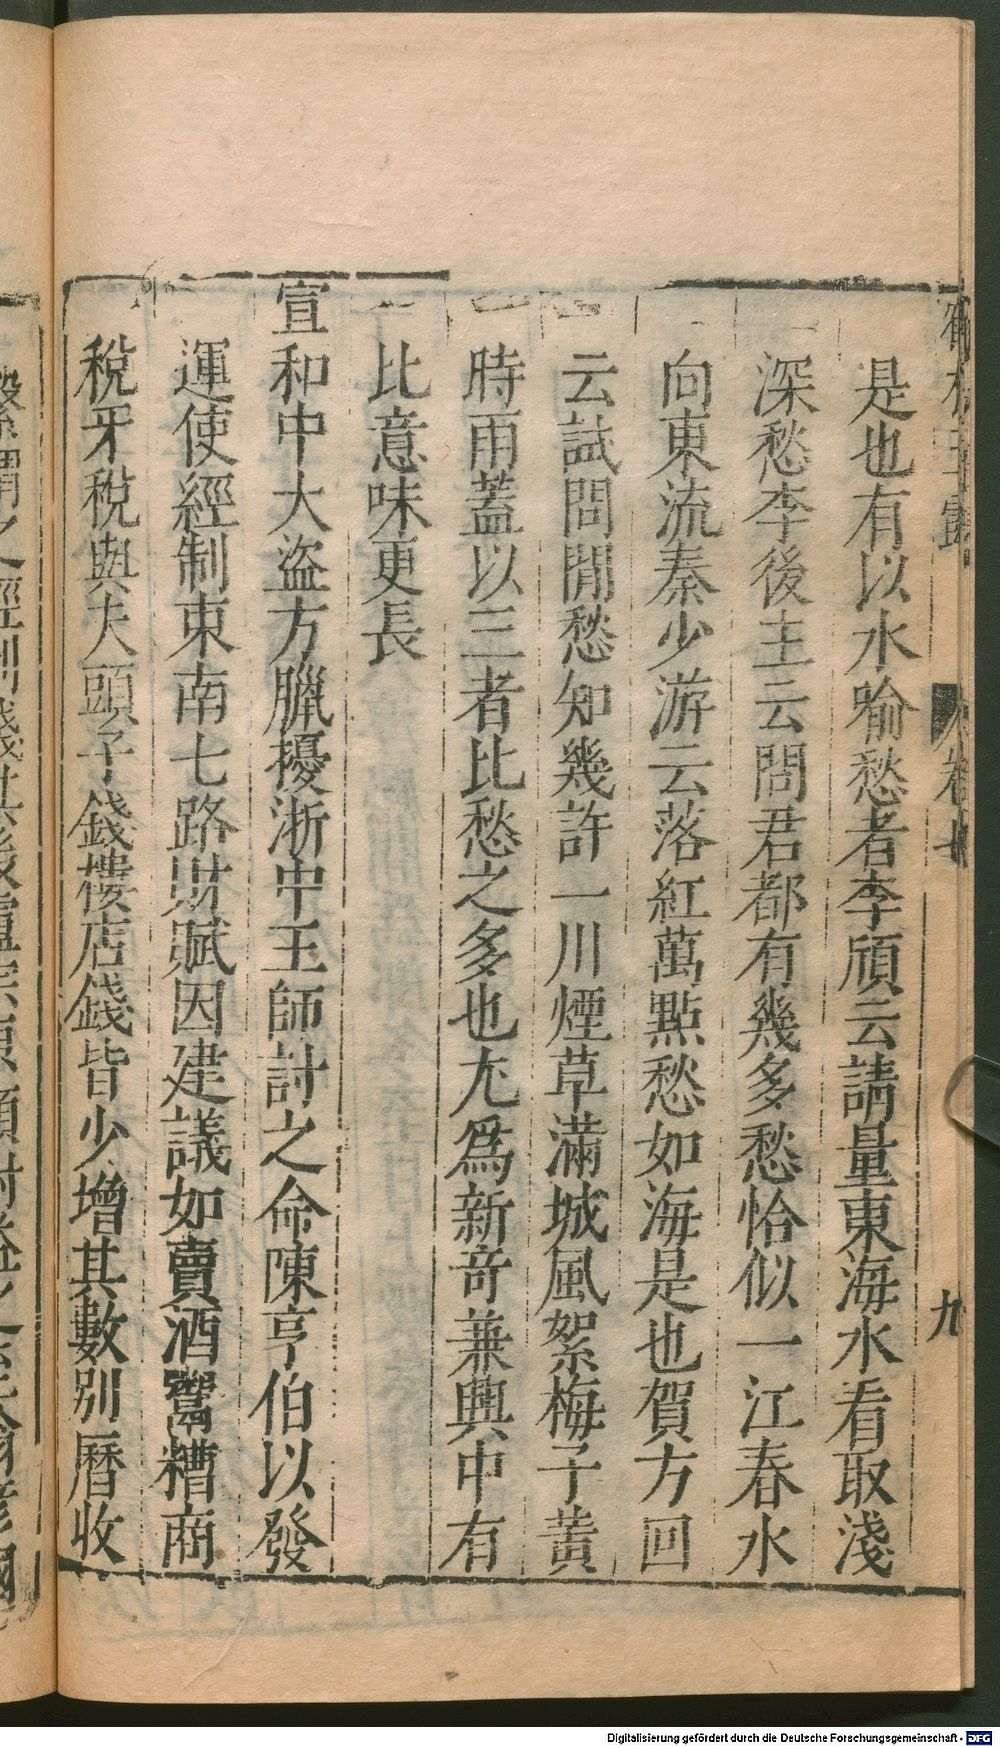 鶴林玉露 卷七 九
是也有以水喻愁者李頎云請量東海水看取淺
深愁李後主云問君都有幾多愁恰似一江春水
向東流秦少游云落紅萬點愁如海是也賀方回
云試問閒愁知幾許一川煙草滿城風絮梅子黃
時雨蓋以三者比愁之多也尤爲新奇兼興中有
比意味更長
宣和中大盜方臘擾浙中王師討之命陳亨伯以發
運使經制東南七路財賦因建議如賣酒鬻糟商
稅牙稅與夫頭子錢樓店錢皆少增其數別曆收
Digitalisierung gefördert durch die Deutsche Forschungsgemeinschaft - DFG